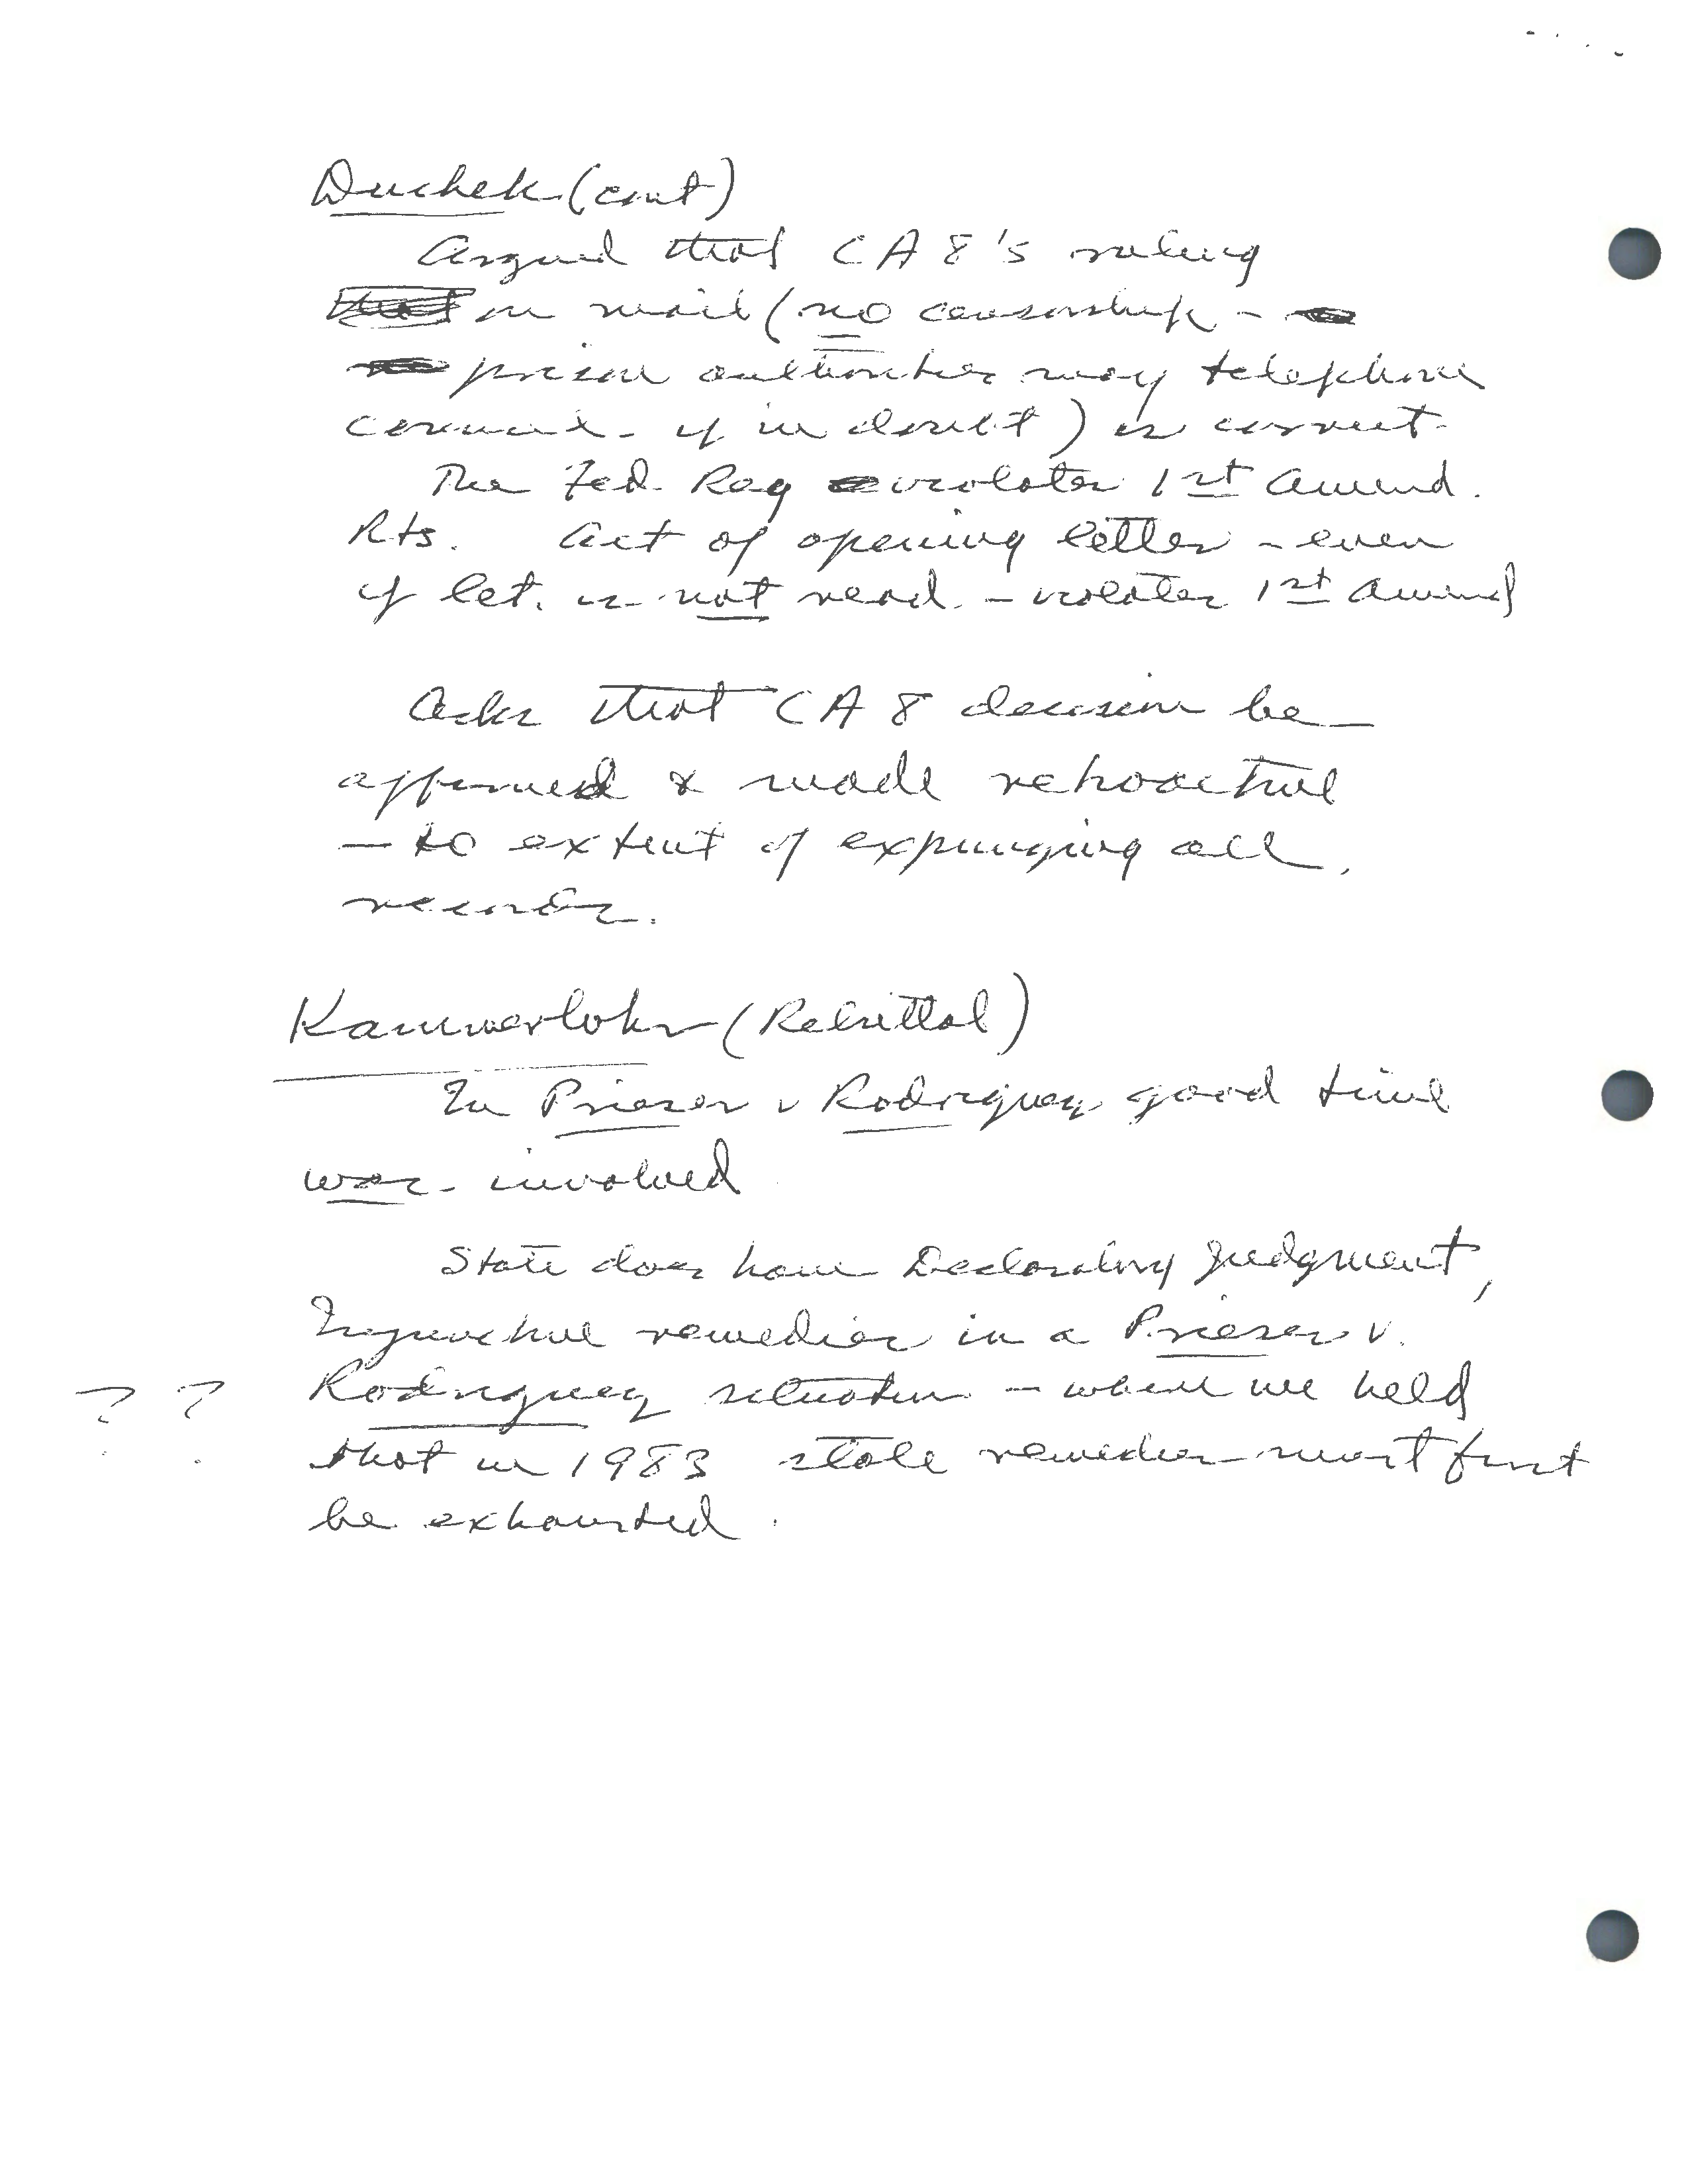 Duchek (cont)
Argued that CA 8's ruling
on mail (no censorship -
prison authorities may telephone
counsel - if in doubt) is correct.
The Fed. Reg violates 1st Amend.
Rts. Act of opening letter - even
if let. is not read - violates 1st Amend
Asks that CA 8 decision be
affirmed & made retroactive
- to extent of expunging all
records.
Kammerlohr (Rebuttal)
In Prieser v Rodriguez good time
was involved
State does have Declaratory Judgment,
Injunctive remedies in a Prieser v.
?? Rodriguez situation - where we held
that in 1983 state remedies must first
be exhausted.